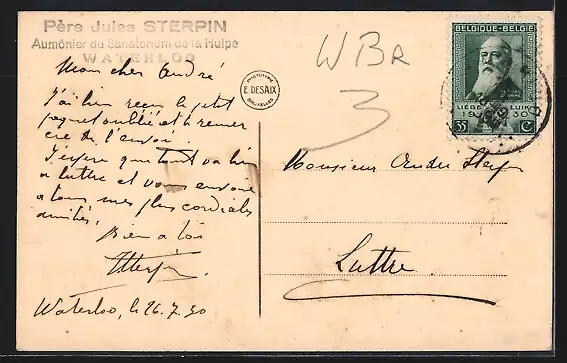 Père Jules STERPIN
Aumônier du Sanatorium de la Hulpe
WATERLOO
Mon cher André
J'ai bien reçu le petit
paquet oublié et te remer
cie de l'envoi
J'espère que tout va bien
a Luttre et vous envoie
a tous mes plus cordiales
amitiés.
Bien a toi
JSterpin
Waterloo, le 26.7.30
PHOTOTYPIE
E. DESAIX
BRUXELLES
WBR
3
BELGIQUE-BELGIE
LIÉGE LUIK
1930
35 C
Monsieur André Sterpin
Luttre